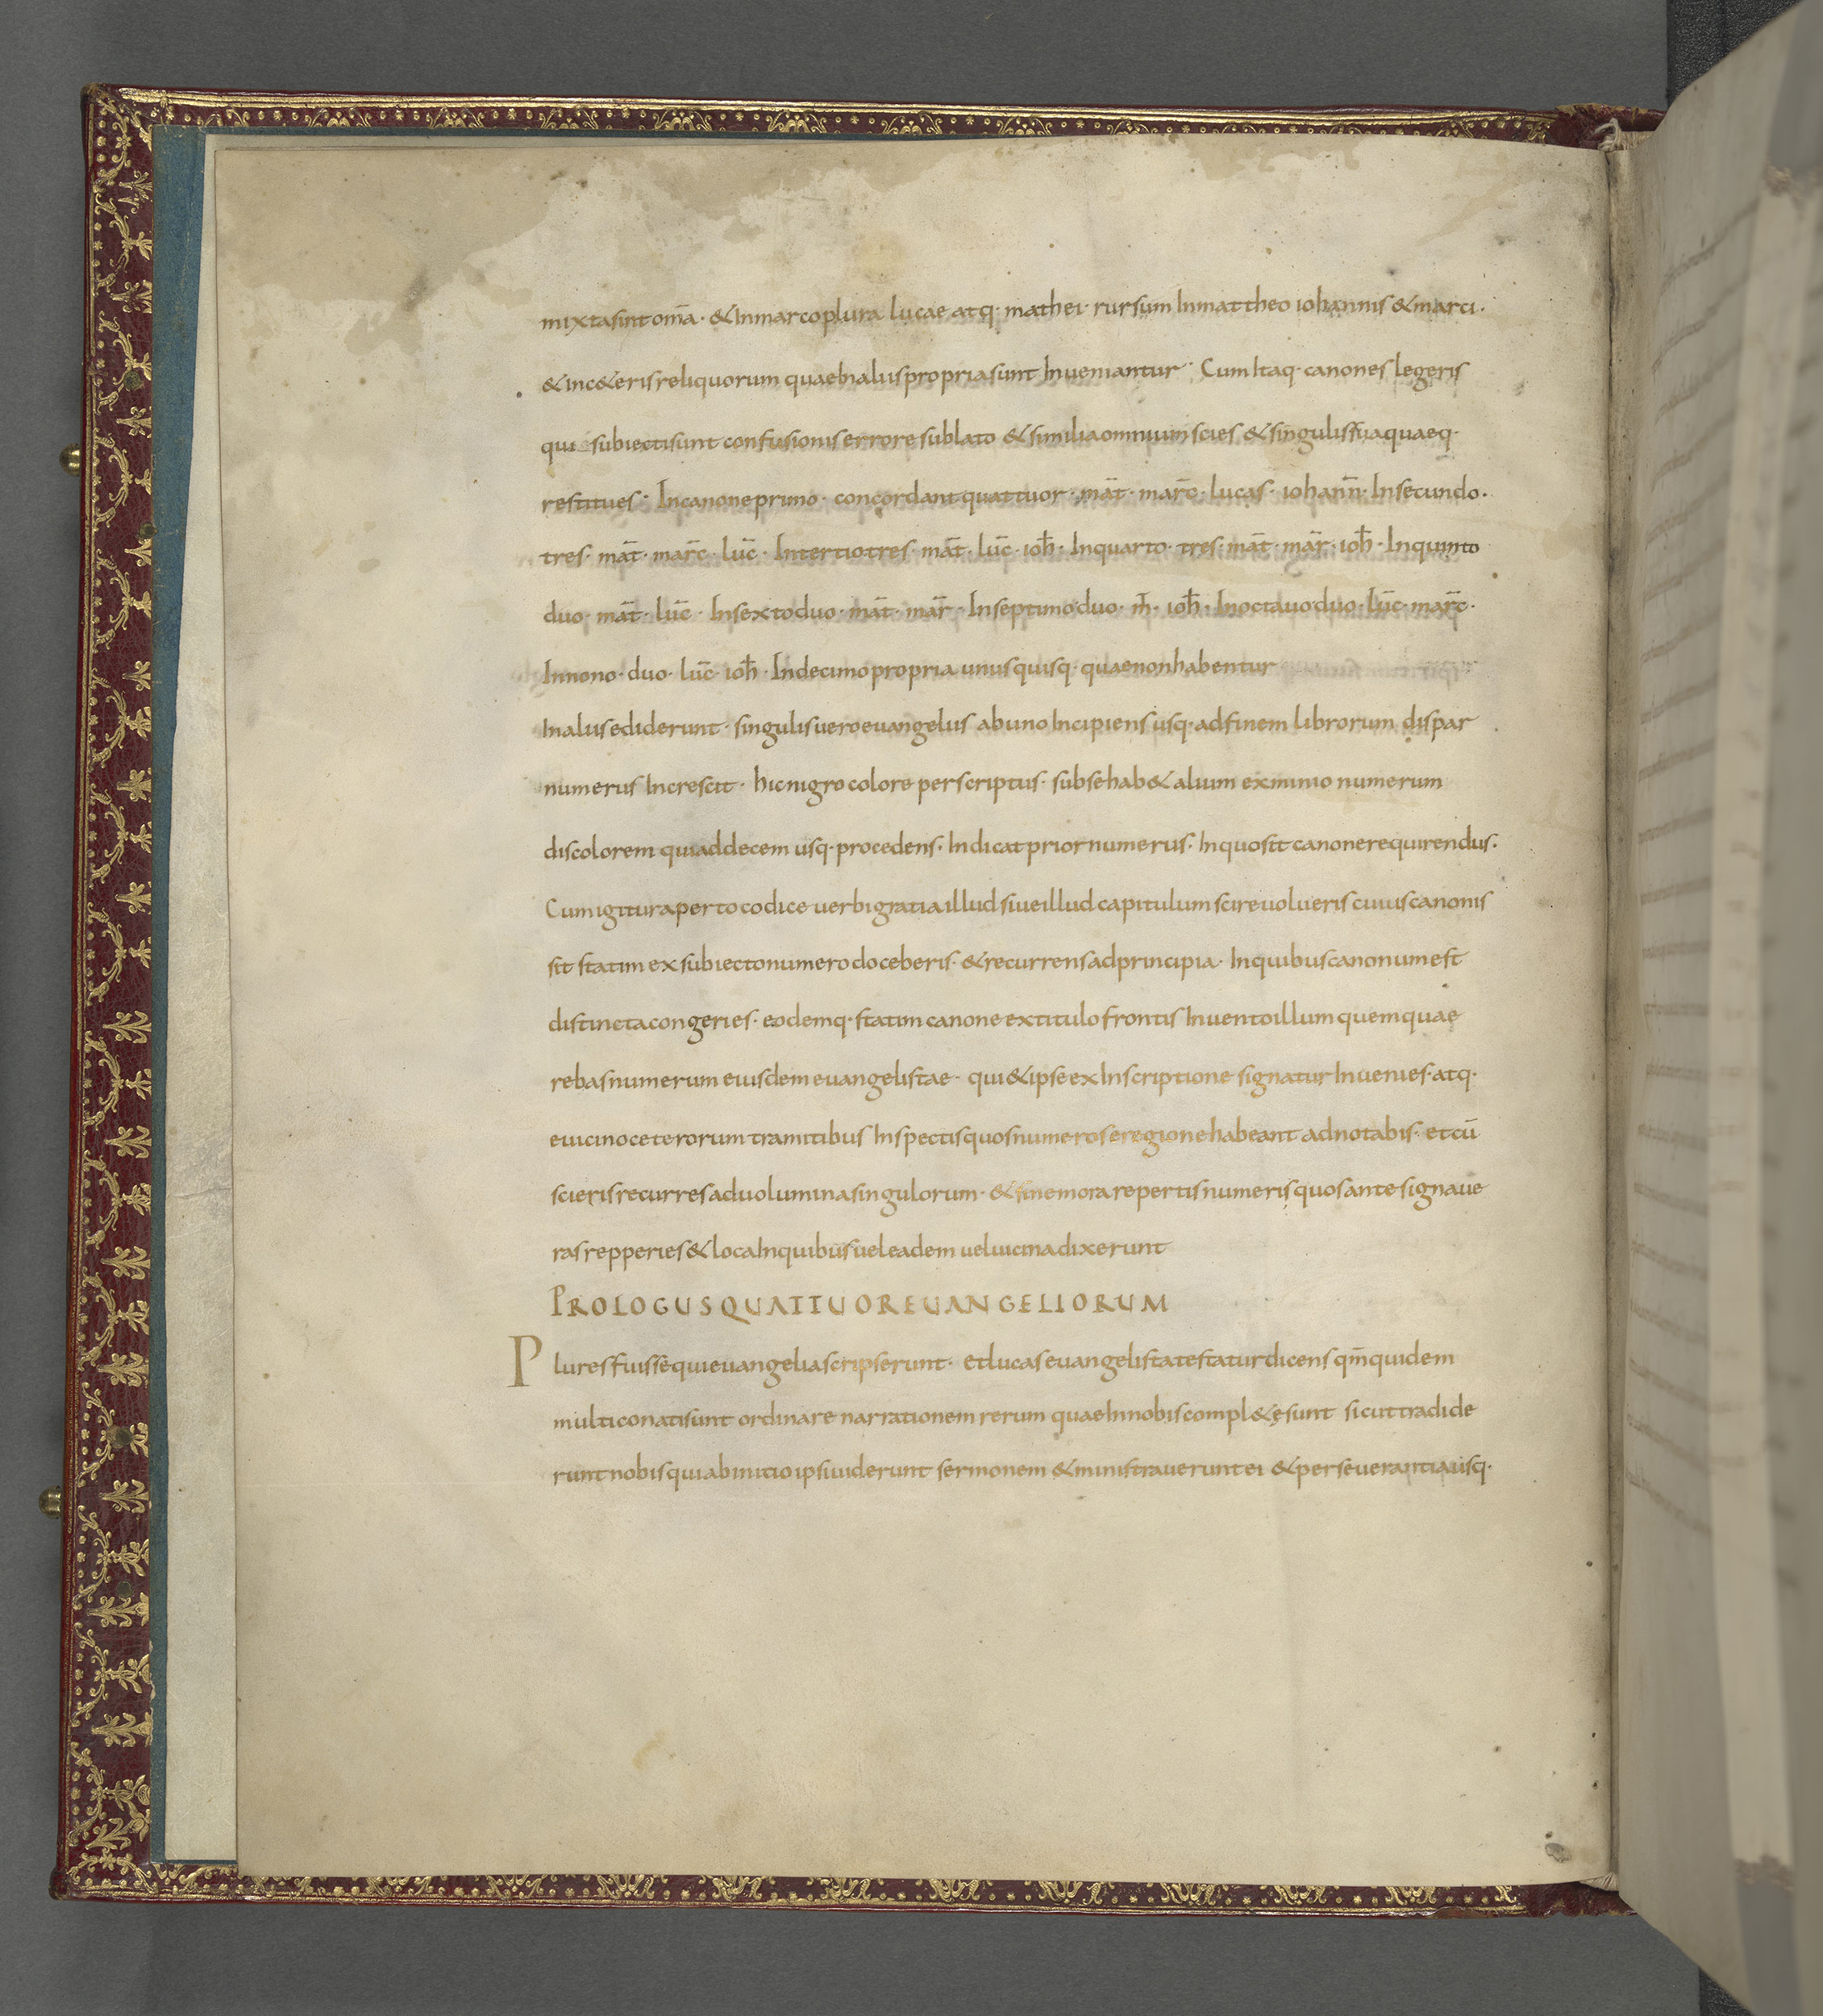 mixtasint om̄a · & Inmarcoplura lucae atq· mathei · rursum Inmattheo iohannis & marci ·
& Inc&eris reliquorum quae Inaliis propria sunt Inueniantur · Cum Itaq· canones legeris
qui subiecti sunt confusionis errore sublato & similia omnium scies & singulis sua quaeq·
restitues · In canone primo · concordant quattuor · māt · mar̄c · lucas · iohann̄ · In secundo ·
tres · māt · mar̄c · lūc · In tertio tres · māt · lūc · ioh̄ · In quarto · tres · māt · mār · ioh̄ · In quinto
duo · māt · lūc · In sexto duo · māt · mār · In septimo duo · m̄ · ioh̄ · In octauo duo · lūc · mar̄c ·
In nono · duo · lūc · ioh̄ · In decimo propria unusquisq· quae non habentur
In aliis ediderunt · singulis uero euangeliis ab uno Incipiens usq· ad finem librorum dispar
numerus Increscit · hic nigro colore perscriptus · sub se hab& alium ex minio numerum
discolorem qui ad decem usq· procedens · Indicat prior numerus · In quo sit canone requirendus ·
Cum igitur aperto codice uerbi gratia illud siue illud capitulum scire uolueris cuius canonis
sit statim ex subiecto numero doceberis · & recurrens ad principia · In quibus canonum est
distincta congeries · eodemq· statim canone ex titulo frontis Inuento illum quem quae
rebas numerum eiusdem euangelistae · qui & ipse ex Inscriptione signatur Inuenies · atq·
e uicino ceterorum tramitibus Inspectis quos numeros e regione habeant adnotabis · et cū
scieris recurres ad uolumina singulorum · & sine mora repertis numeris quos ante signaue
ras repperies & loca In quibus uel eadem uel uicina dixerunt
PROLOGUS QUATTUOR EUANGELIORUM
Plures fuisse qui euangelia scripserunt · et lucas euangelista testatur dicens qm̄ quidem
multi conati sunt ordinare narrationem rerum quae In nobis compl&ę sunt sicut tradide
runt nobis qui ab initio ipsi uiderunt sermonem & ministrauerunt ei & perseuerantia usq·